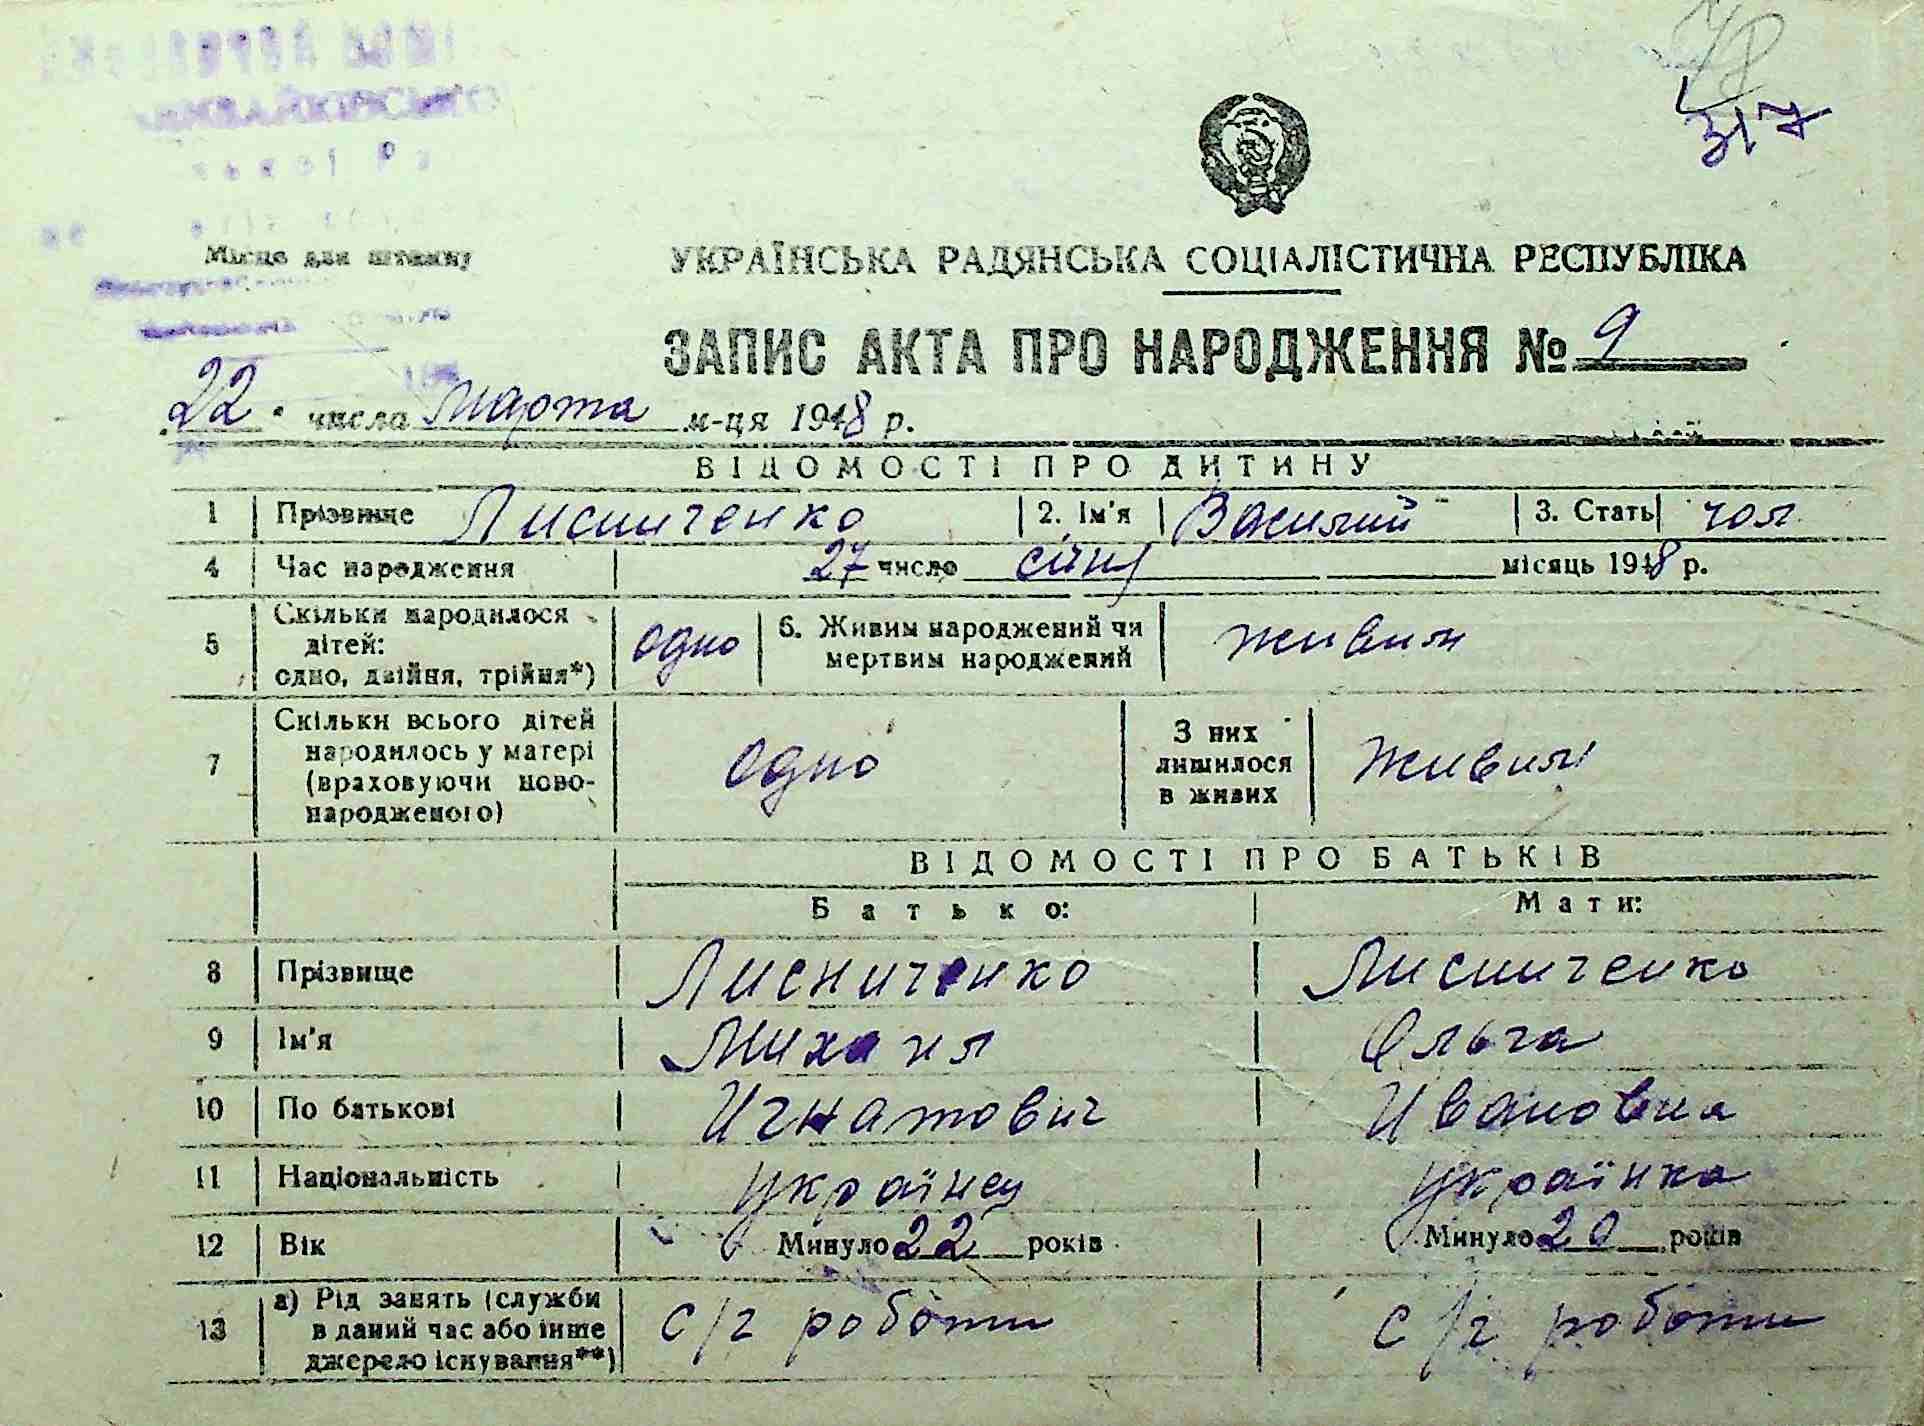 317
Місце для штампу
УКРАЇНСЬКА РАДЯНСЬКА СОЦІАЛІСТИЧНА РЕСПУБЛІКА
ЗАПИС АКТА ПРО НАРОДЖЕННЯ № 9
22 числа марта м-ця 1948 р.
ВІДОМОСТІ ПРО ДИТИНУ
1 Прізвище Лисниченко 2. Ім'я Василий 3. Стать чол
4 Час народження 27 число січня місяць 1948 р.
5 Скільки народилося дітей: одно, двійня, трійня*) одно 6. Живим народжений чи мертвим народжений живим
7 Скільки всього дітей народилось у матері (враховуючи ново-народженого) одно З них лишилося в живих живим
ВІДОМОСТІ ПРО БАТЬКІВ
Батько: Мати:
8 Прізвище Лисниченко Лисниченко
9 Ім'я Михаил Ольга
10 По батькові Игнатович Ивановна
11 Національність українец українка
12 Вік Минуло 22 років Минуло 20 років
13 а) Рід занять (служби в даний час або інше джерело існування**) с/г роботи с/г роботи